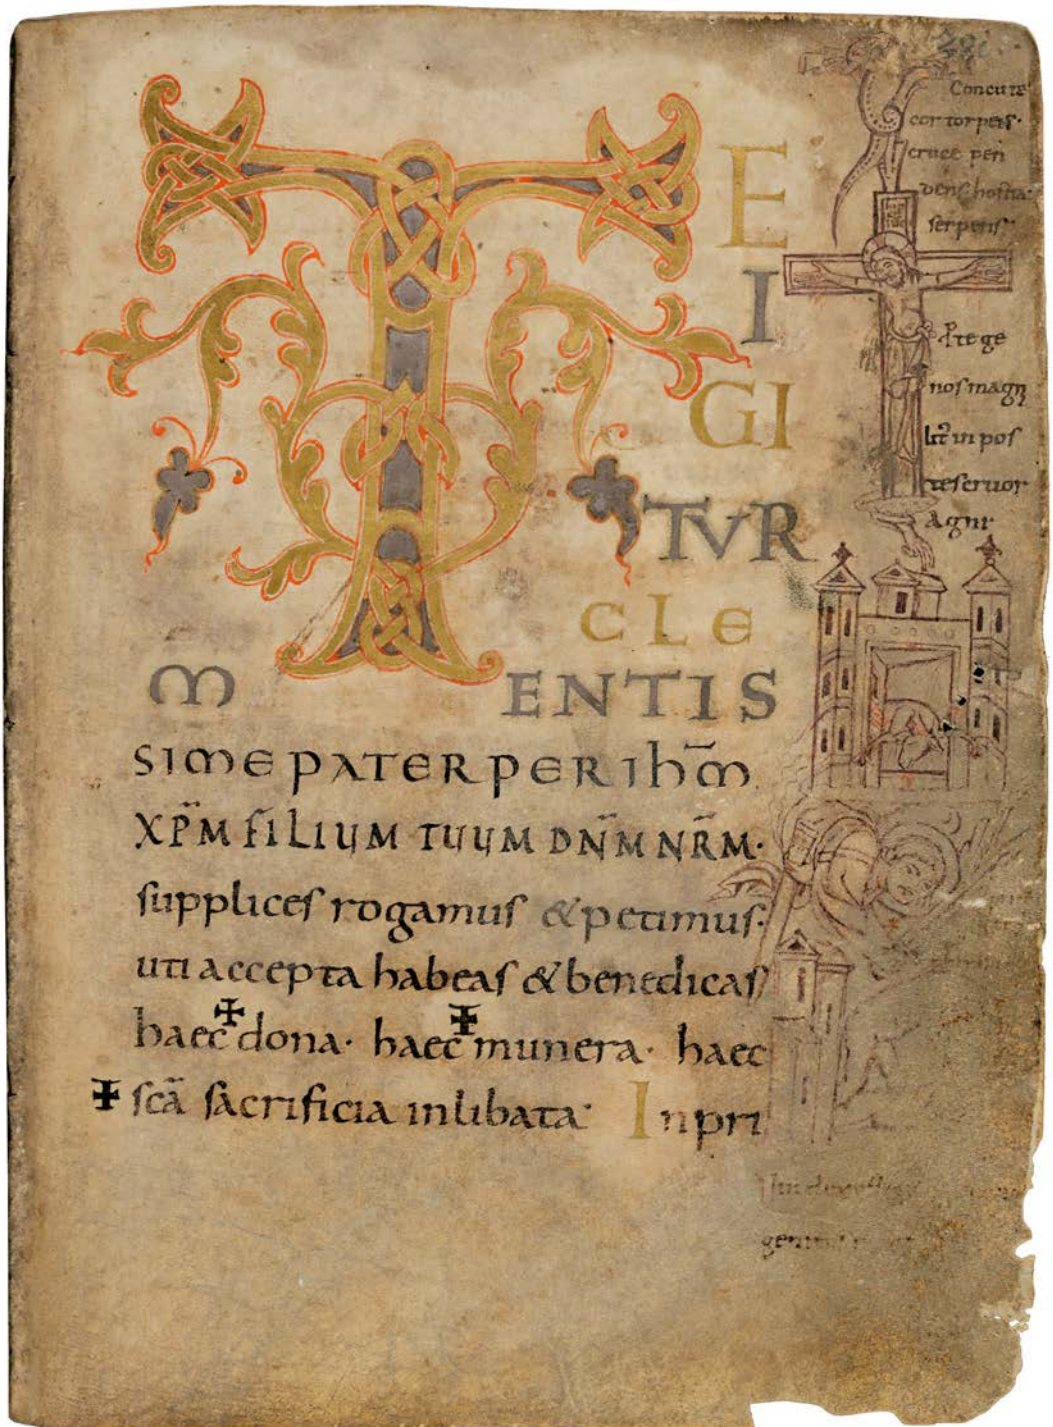 TE
I
GI
TVR
CLE
MENTIS
SIME PATER PER IHM̅
XP̅M FILIUM TUUM DN̅M NR̅M·
supplices rogamus & petimus·
uti accepta habeas & benedicas
haec ✠ dona· haec ✠ munera· haec
✠ sc̅a sacrificia inlibata· Inpri
Concute
cor torpens·
cruce pen
dens hostia
serpens
Protege
nos magn
in pos
te seruor
agni·